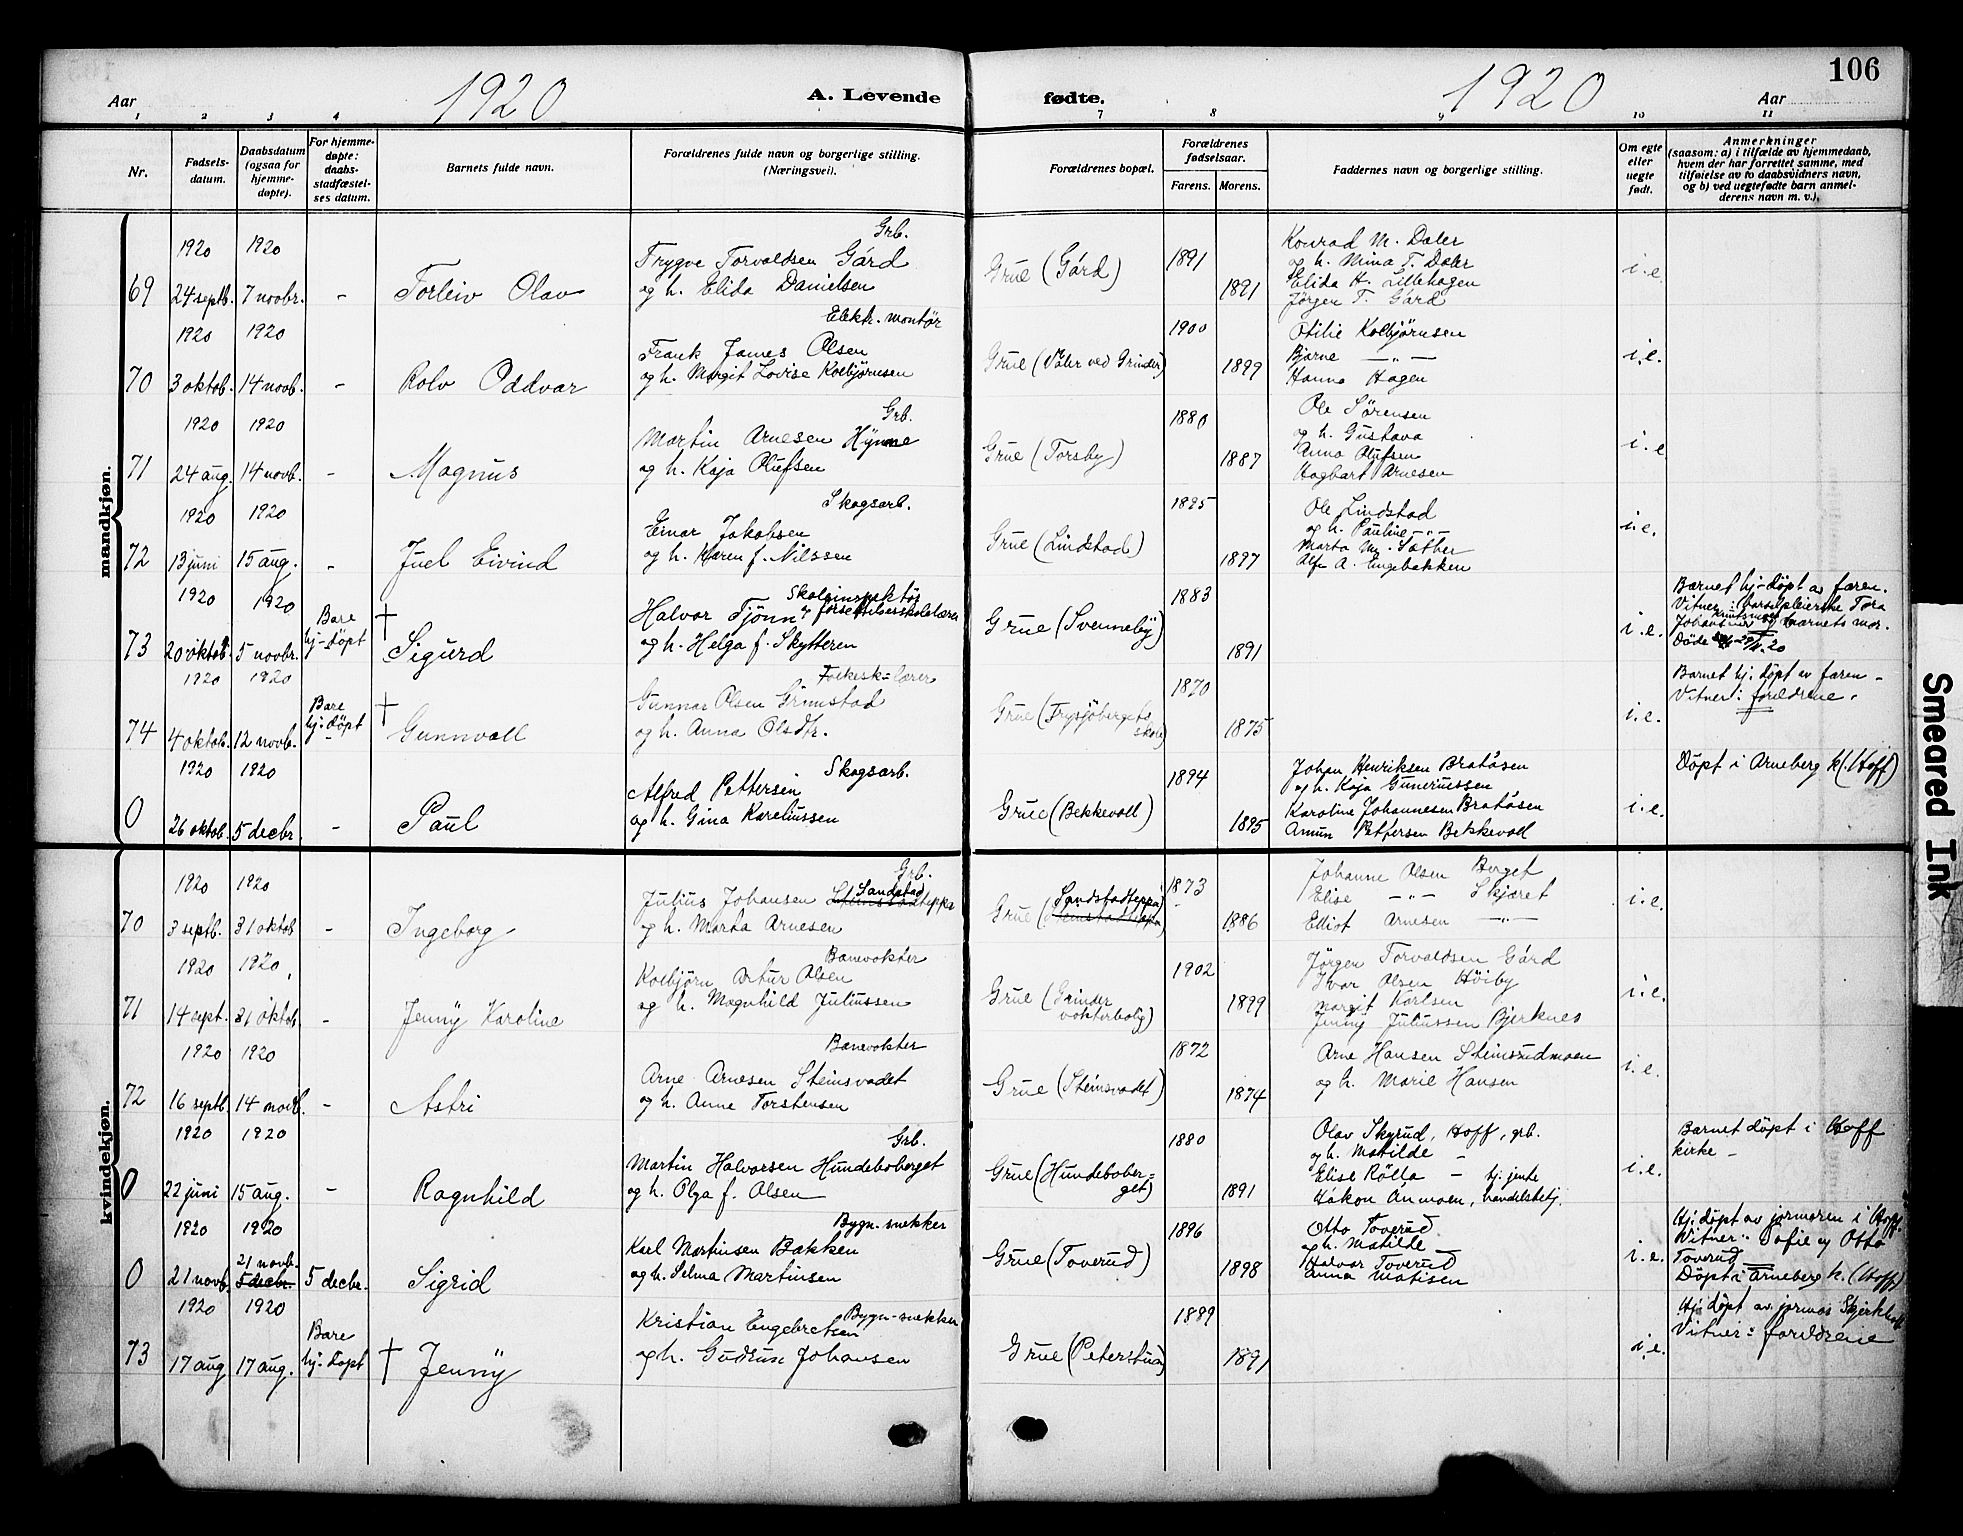 106
Aar 1920 A. Levende fødte. 1920 Aar
1 2 3 4 7 8 9 10 11
Nr.
Fødsels-
datum.
Daabsdatum
(ogsaa for
hjemme-
døpte).
For hjemme-
døpte:
daabs-
stadfæstel-
ses datum.
Barnets fulde navn.
Forældrenes fulde navn og borgerlige stilling.
(Næringsvei).
Forældrenes bopæl.
Forældrenes
fødselsaar.
Farens. Morens.
Faddernes navn og borgerlige stilling.
Om egte
eller
uegte
født.
Anmerkninger
(saasom: a) i tilfælde av hjemmedaab,
hvem der har forrettet samme, med
tilføielse av to daabsvidners navn,
og b) ved uegtefødte barn anmel-
derens navn m. v.).
mandkjøn.
69
1920
24 septb.
1920
7 novbr.
-
Torleiv Olav
Grb.
Trygve Torvaldsen Gård
og h. Elida Danielsen
Grue (Gård)
1891
1891
Konrad M. Daler
og h. Mina T. Daler
Elida H. Lillehagen
Jørgen T. Gård
i.e.
70
1920
3 oktob.
1920
14 novb.
-
Rolv Oddvar
Elektr. montør
Frank James Olsen
og h. Margit Lovise Kolbjørnsen
Grue (Våler ved Grinder)
1900
1899
Otilie Kolbjørnsen
Bjarne -"-
Hanna Hagen
i.e.
71
1920
24 aug.
1920
14 novb.
-
Magnus
Grb.
Martin Arnesen Hynne
og h. Kaja Olufsen
Grue (Torsby)
1880
1887
Ole Sørensen
og h. Gustava
Anna Olufsen
Hagbart Arnesen
i.e
72
1920
13 juni
1920
15 aug.
-
Juel Eivind
Skogsarb.
Einar Jakobsen
og h. Karen f. Nilssen
Grue (Lindstad)
1895
1897
Ole Lindstad
og h. Pauline -"-
Marta M. Sæther
Alf A. Engebakken
i.e.
73
1920
20 oktob.
1920
5 novbr.
Bare
hj-døpt
† Sigurd
Skoleinspektør
Halvor Tjønn,
og h. Helga f. Skytteren
Grue (Svenneby)
1883
1891
i.e.
Barnet hj-døpt av faren.
Vitner: barselpleierske Tora
Johansner barnets mor.
Døde
74
1920
4 oktob.
1920
12 novb.
Bare
hj-døpt
† Gunnvall
Folkesk-lærer
Gunnar Olsen Grinustad
og h. Anna Olsdtr.
Grue (Frysjøbergets
skole)
1870
1875
i.e.
Barnet hj. døpt av faren -
Vitner: forældrene.
0
1920
26 oktob.
1920
5 decbr.
-
Paul
Skogsarb.
Alfred Pettersen
og h. Gina Kareliussen
Grue (Bekkevoll)
1894
1895
Johan Henriksen Bratåsen
og h. Kaja Gunerussen
Karoline Johannesen Bratåsen
Amun Pettersen Bekkevoll
i.e.
Døpt i Arneberg k. (Hoff)
kvindekjøn.
70
1920
3 septb.
1920
31 oktob
-
Ingeborg
Grb.
Sandstad
Julius Johansen Steinstadteppa
og h. Marta Arnesen
Grue (Sandstadteppa)
Steinstadteppa
1873
1886
Johanne Olsen Berget
Elise -"- Skjæret
Elliot Arnesen -"-
i.e.
71
1920
14 sept.
1920
31 oktob.
-
Jenny Karoline
Banevokter
Kolbjørn Artur Olsen
og h. Magnhild Juliussen
Grue (Grinder
vokterbolig)
1902
1899
Jørgen Torvaldsen Gård
Ivar Olsen Høiby
Margit Karlsen
Jenny Juliussen Bjerknes
i.e.
72
1920
16 septb.
1920
14 novb.
-
Astri
Banevokter
Arne Arnesen Steinsvadet
og h. Anne Torstensen
Grue (Steinsvadet)
1872
1874
Arne Hansen Steinsrudmoen
og h. Marie Hansen
i.e.
0
1920
22 juni
1920
15 aug.
-
Ragnhild
Grb.
Martin Halvorsen Hundeboberget
og h. Olga f. Olsen
Grue (Hundebober-
get)
1880
1891
Olav Skyrud, Hoff, grb.
og h. Matilde -
Elise Rølla - hj. jente
Håkon Anmoen, handelsbetj.
i.e.
Barnet døpt i Hoff
kirke -
0
1920
21 novb.
1920
21 novb.
5 decbr.
5 decbr.
Sigrid
Bygn.-snekker
Karl Martinsen Bakken
og h. Selma Martinsen
Grue (Toverud)
1896
1898
Otto Toverud
og h. Matilde
Halvor Toverud
Anna Matisen
i.e.
Hj. døpt av jormoren i Hoff.
Vitner: Sofie og Otto
Toverud
Døpt i Arneberg k. (Hoff)
73
1920
17 aug
1920
17 aug.
Bare
hj-døpt
† Jenny
Bygn-snekker
Kristian Engebretsen
og h. Gudrun Johansen
Grue (Peterstua)
1889
1891
i.e.
Hj. døpt av jormor
Vitner: forældrene
Smeared Ink